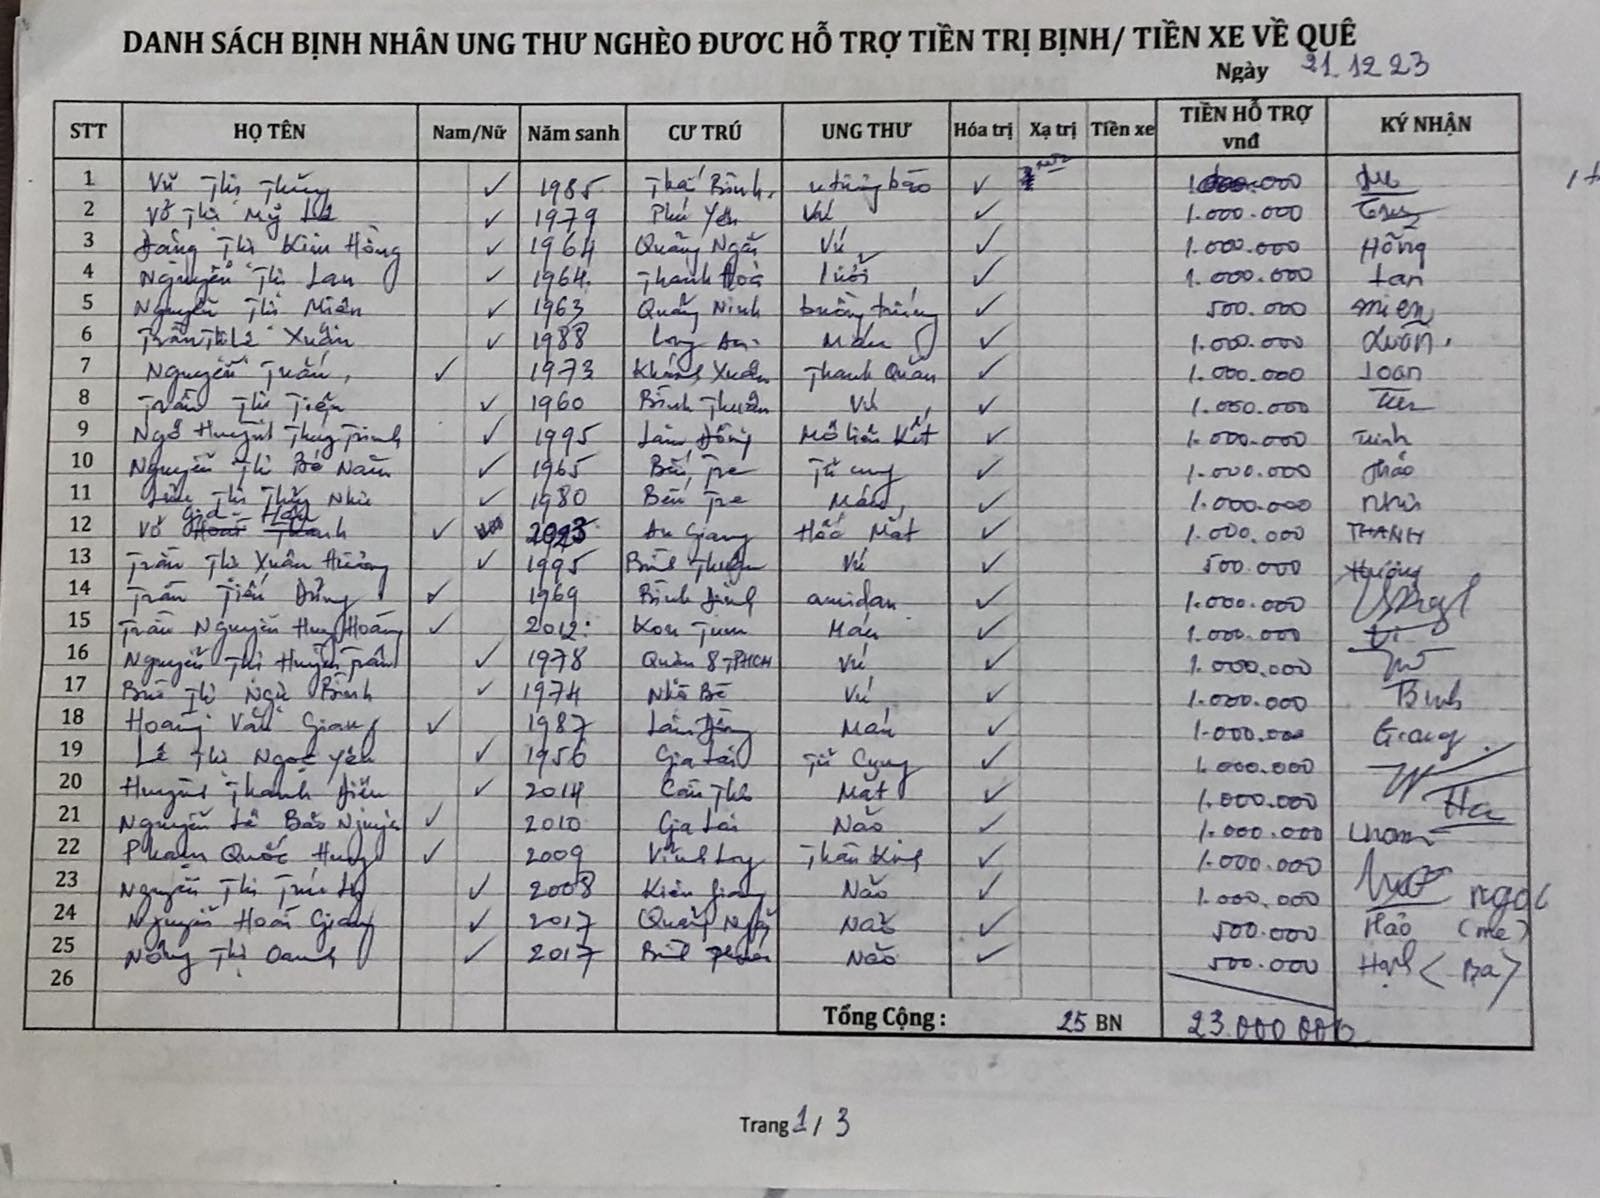 DANH SÁCH BỊNH NHÂN UNG THƯ NGHÈO ĐƯƠC HỖ TRỢ TIỀN TRỊ BỊNH/ TIỀN XE VỀ QUÊ
Ngày 21.12 23
STT HỌ TÊN Nam/Nữ Năm sanh CƯ TRÚ UNG THƯ Hóa trị Xạ trị Tiền xe TIỀN HỖ TRỢ vnđ KÝ NHẬN
1 Vũ Thị ✓ 1985 Thái Bình ✓
2 Võ Thị Mỹ ✓ 1979 Phú Yên Vú ✓ 1.000.000
3 Đặng Thị Kim Hồng ✓ 1964 Quãng Ngãi Vú ✓ 1.000.000 Hồng
4 Nguyễn Thị Lan ✓ 1964 Thanh Hoá lưỡi ✓ 1.000.000 Lan
5 Nguyễn Thị Miên ✓ 1963 Quảng Ninh buồng trứng ✓ 500.000 miên
6 Xuân ✓ 1988 Long An Máu ✓ 1.000.000 Xuân
7 Nguyễn Tuấn ✓ 1973 Thanh Quản ✓ 1.000.000
8 Trần Thị ✓ 1960 Bình Thuận Vú ✓ 1.000.000
9 Ngô Huỳnh Thùy Trinh ✓ 1995 Lâm Đồng Mô liên Kết ✓ 1.000.000 Trinh
10 Nguyễn Thị Bé Năm ✓ 1965 Bến Tre Tử cung ✓ 1.000.000 Thảo
11 Thị Như ✓ 1980 Bến Tre Máu ✓ 1.000.000 Như
12 Võ ✓ An Giang Hốc Mắt ✓ 1.000.000 THANH
13 Trần Thị Xuân Hương ✓ 1995 Bình Thuận Vú ✓ 500.000 Hương
14 Trần Tiến Dũng ✓ 1969 Bình Định amidan ✓ 1.000.000
15 Trần Nguyễn Huy Hoàng ✓ 2012 Kon Tum Máu ✓ 1.000.000
16 Nguyễn Thị Huyền Trân ✓ 1978 Quận 8 TPHCM Vú ✓ 1.000.000
17 Bùi Thị Ngọc Bình ✓ 1974 Nhà Bè Vú ✓ 1.000.000 Bình
18 Hoàng Văn Giang ✓ 1987 Lâm Đồng Máu ✓ 1.000.000 Giang
19 Lê Thị Ngọc Yến ✓ 1956 Gia Lai Tử Cung ✓ 1.000.000
20 Huỳnh Thanh ✓ 2014 Cần Thơ Mắt ✓ 1.000.000 Ha
21 Nguyễn Lê Bảo Nguyên ✓ 2010 Gia Lai Não ✓ 1.000.000
22 Phạm Quốc Hưng ✓ 2009 Vĩnh Long Thần Kinh ✓ 1.000.000
23 Nguyễn Thị Trúc ✓ 2008 Kiên Giang Não ✓ 1.000.000 ngọc
24 Nguyễn Hoài Giang ✓ 2017 Quảng Ngãi Não ✓ 500.000 Hảo (mẹ)
25 Nông Thị Oanh ✓ 2017 Não ✓ 500.000 Hạnh (Ba)
26
Tổng Cộng : 25 BN 23.000 000
Trang 1 / 3